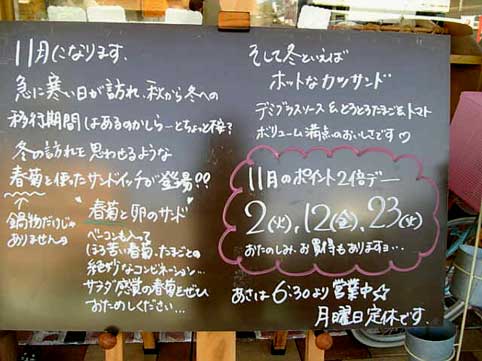 11月になります.
急に寒い日が訪れ、秋から冬への
移行期間はあるのかしら—とちょっと不安?
冬の訪れを思わせるような
春菊を使ったサンドイッチが登場??
↑
鍋物だけじゃ
ありませんの
"春菊と卵のサンド"
ベーコンも入って
ほろ苦い春菊、たまごとの
絶妙なコンビネーション…
サラダ感覚の春菊をぜひ
おためしください…
そして冬といえば
ホットなカツサンド
デミグラスソース&とろとろたまご&トマト
ボリューム満点のおいしさです♡
11月のポイント2倍デー
2(火), 12(金), 23(火)
おたのしみ、お買得もありますョ…
あさは6:30より営業中☆
月曜日定休です.